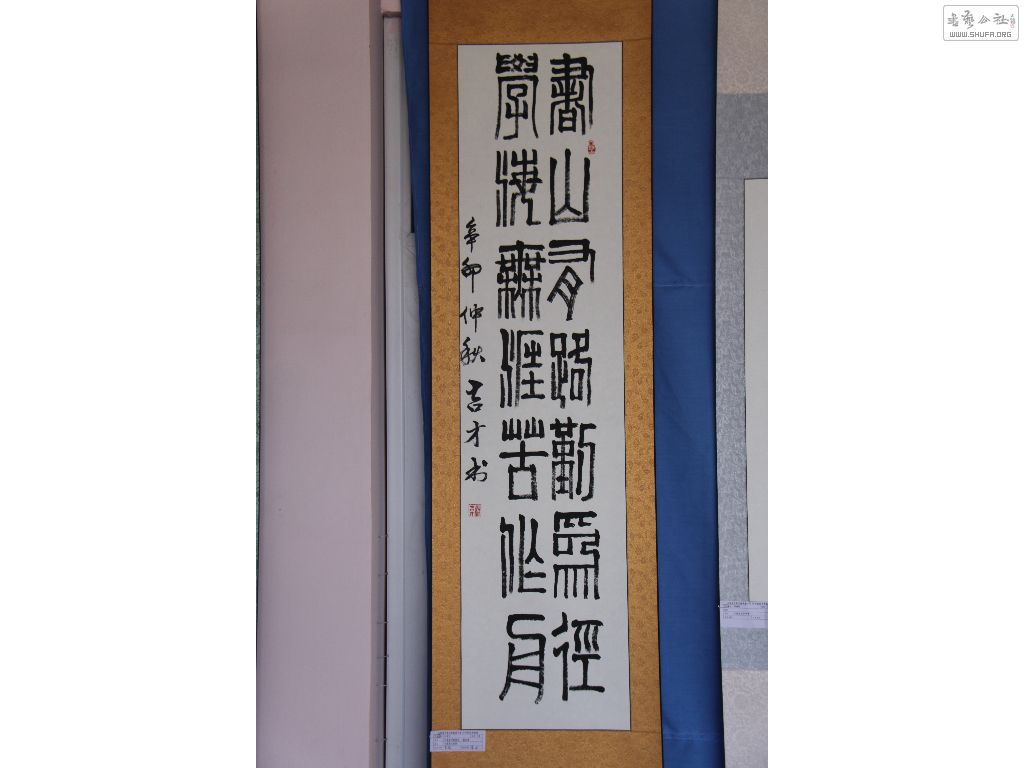 書山有路勤為徑
學海無涯苦作舟
辛卯仲秋吉才书
書藝公社
WWW.SHUFA.ORG